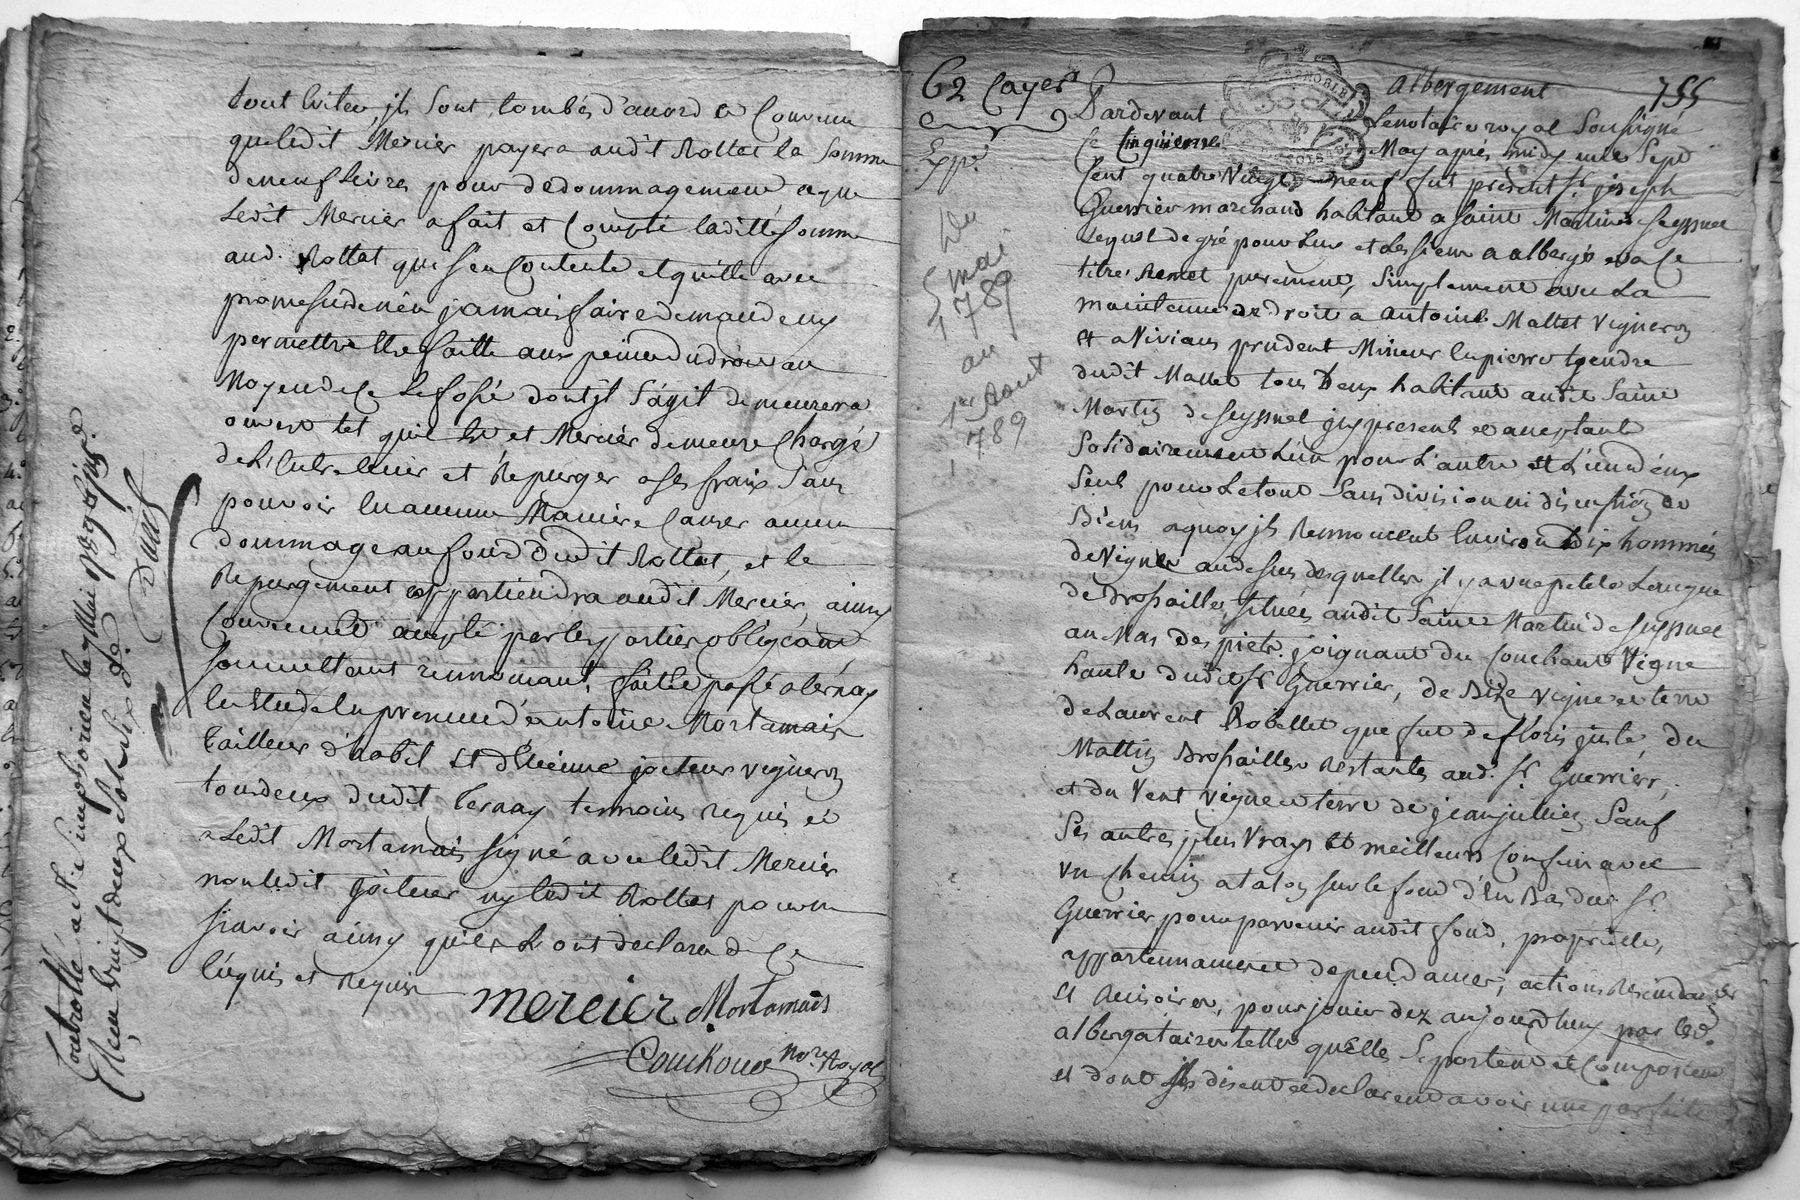 tout Eviter, jls sont tombés d'accord et Convenu
que ledit Mercier payera audit Rollet la somme
de neuf Livres pour dedommagement, ce que
Ledit Mercier a fait et Compté laditte somme
aud. Rollet qui s'en Contente et quitte avec
promesse de n'en jamais faire demande ny
permettre Etre faitte aux peines du droit au
Moyen de Ce Le fossé dont jl s'agit demeurera
ouvert tel qu'il Est et Mercier demeure Chargé
de L'Entretenir et Repurger a ses frais sans
pouvoir En aucune Maniere Causer aucun
dommage au fond dudit Rollet, et le
Repurgement appartiendra audit Mercier, ainsy
Convenu accepté par les parties obligeant
soumettant renoncant, fait et passé a
En Etude En presence d'antoine Mortamais
Tailleur d'habit et d'Etienne vigneron
tous deux dudit temoins requis et
a Ledit Mortamais signé avec ledit Mercier
non ledit ny ledit Rollet pour ne
scavoir ainsy qu'ils L'ont declaré de Ce
Enquis et Requis
Mercier Mortamais
Couchoud nore. Royal
Controllé a St. Simphorien le Mai 1789 Reçu
vingt deux sols six d.
62 Cayer
Albergement
755
Expé
Du
5 mai
1789
au
1er Aout
1789
Pardevant Le notaire royal Soussigné
Ce Cinquieme May après midy mille Sept
Cent quatre Vingt neuf fut present Sr. joseph
Guerrier marchand habitant a Saint Martin de seyssuel
Lequel de gré pour Luy et Les siens a albergé et a Ce
titre Remet purement, Simplement avec La
maintenue de droit a antoine Mallet Vigneron
et a Vivians prudent Mineur En pierre gendre
dudit Mallet tous Deux habitant audit Saint
Martin de seyssuel jcy presents et acceptants
Solidairement L'un pour L'autre et L'un d'eux
Seul pour Le tout Sans division ni discution de
Biens a quoy jls Renoncent Environ Dix hommées
de Vigne au dessus desquelles jl y a une petite Longue
de Brossailles, situées audit Saint Martin de seyssuel
au Mas des joignant du Couchant Vigne
haute dudit Sr. Guerrier, de Bize vigne et terre
de Laurent Robellet que fut de floris juste, du
Mattin Brossailles Restantes aud. Sr. Guerrier,
et du Vent vigne et terre de jean jullien Sauf
Ses autres plus Vrays et meilleurs Confins avec
un Chemin a talon sur le fond d'En Bas du Sr.
Guerrier pour parvenir audit fond, proprieté,
appartenance et dependances, actions Rescindantes
et Rescisoires, pour jouir dez aujourd'huy par Lesd.
albergataires telles qu'elles Se portent et Comportent
et dont jls disent et declarent avoir une parfaite